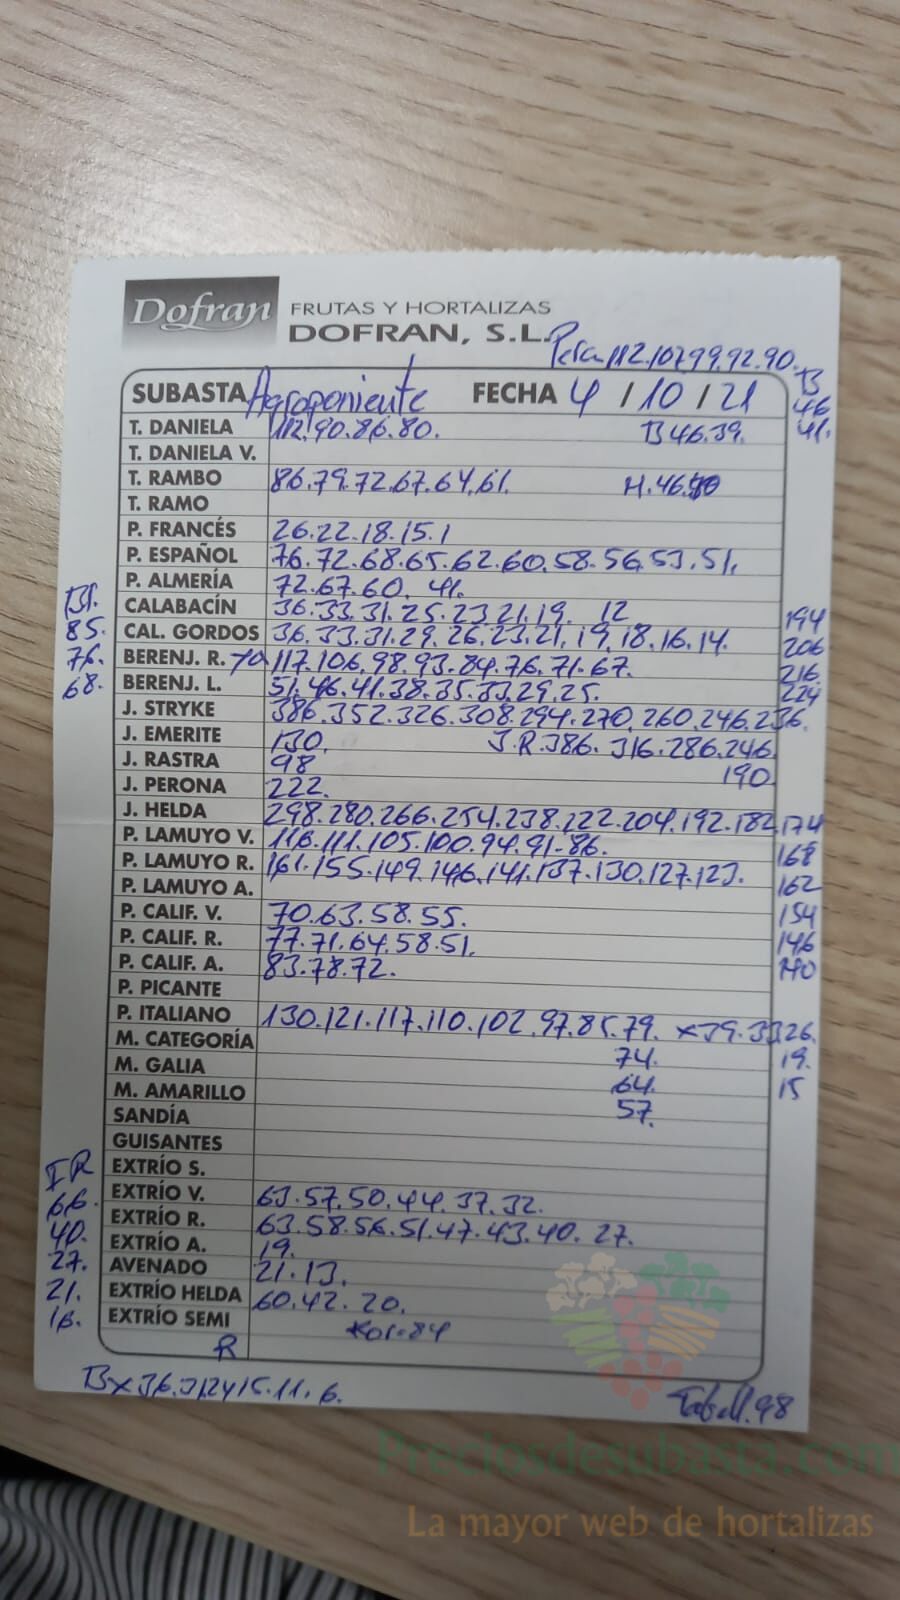 Dofran FRUTAS Y HORTALIZAS
DOFRAN, S.L.
Pera 112.107.99.92.90.
SUBASTA Agroponiente FECHA 4 / 10 / 21
B
46
41.
T. DANIELA 112.90.86.80. B 46.39.
T. DANIELA V.
T. RAMBO 86.79.72.67.64.61. M.46.
T. RAMO
P. FRANCÉS 26.22.18.15.1
P. ESPAÑOL 76.72.68.65.62.60.58.56.53.51.
P. ALMERÍA 72.67.60. 41.
CALABACÍN 36.33.31.25.23.21.19. 12
CAL. GORDOS 36.33.31.29.26.23.21.19.18.16.14.
BERENJ. R. 117.106.98.93.84.76.71.67.
BERENJ. L. 51.46.41.38.35.33.29.25.
Bl.
85.
76.
68.
194
206
216.
224
J. STRYKE 386.352.326.308.294.270.260.246.236.
J. EMERITE 130. J.R.386.316.286.246.
J. RASTRA 98 190
J. PERONA 222.
J. HELDA 298.280.266.254.238.222.204.192.182.174
P. LAMUYO V. 118.111.105.100.94.91-86. 168
P. LAMUYO R. 161.155.149.146.141.137.130.127.123.
P. LAMUYO A. 162
P. CALIF. V. 70.63.58.55. 154
P. CALIF. R. 77.71.64.58.51. 146
P. CALIF. A. 83.78.72. 140
P. PICANTE
P. ITALIANO 130.121.117.110.102.97.85.79. x39.33.26.
M. CATEGORÍA 74. 19.
M. GALIA 64. 15
M. AMARILLO 57.
SANDÍA
GUISANTES
EXTRÍO S.
EXTRÍO V. 63.57.50.44.37.32.
EXTRÍO R. 63.58.56.51.47.43.40.27.
EXTRÍO A. 19.
AVENADO 21.13.
EXTRÍO HELDA 60.42.20.
EXTRÍO SEMI
IR
66.
40.
27.
21.
18.
R
Bx36.31.24.15.11.6.
Tabell.98
Preciosdesubasta.com
La mayor web de hortalizas